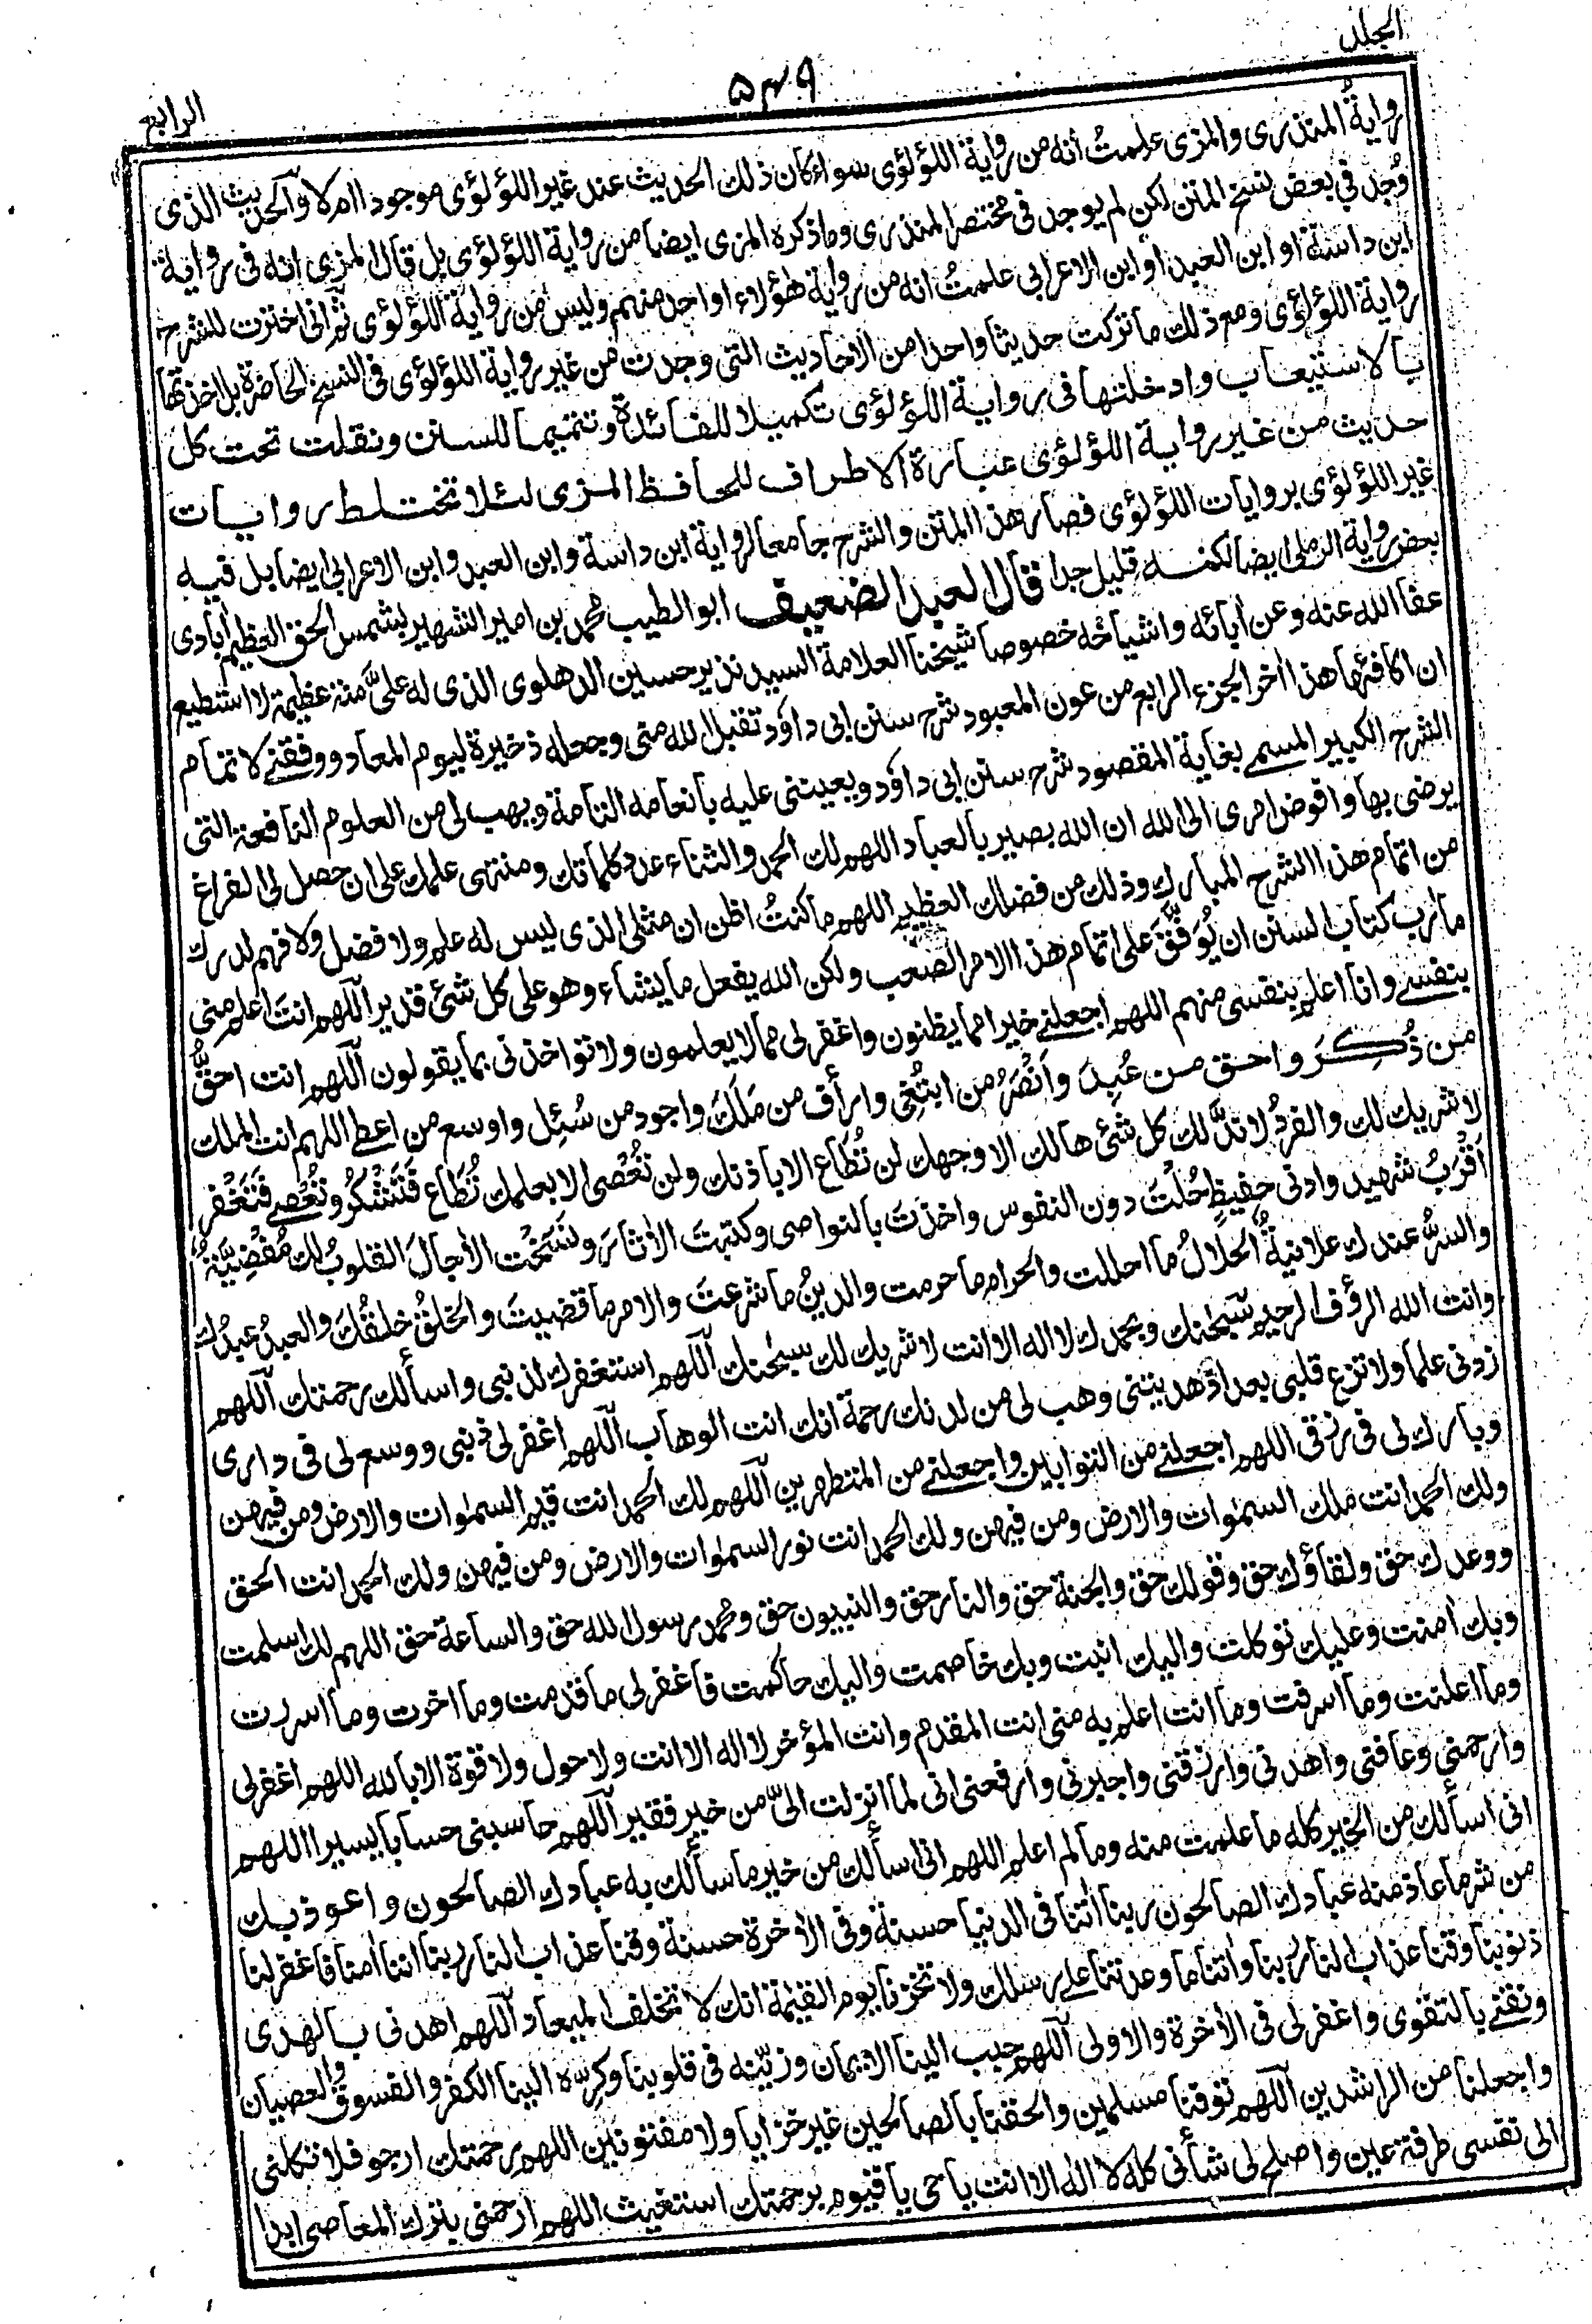 المجلد
۵۴۹
الرابع
رواية المنذري والمزي علمتُ أنه من رواية اللؤلؤي سواء كان ذلك الحديث عند غير اللؤلؤي موجودا ام لا والحديث الذي
وُجد في بعض نسخ المتن لكن لم يوجد في مختصر المنذري وما ذكره المزي ايضا من رواية اللؤلؤي بل قال المزي انه في رواية
ابن داسة او ابن العبد او ابن الاعرابي علمتُ انه من رواية هؤلاء او احد منهم وليس من رواية اللؤلؤي ثم اني اخترت للشرح
رواية اللؤلؤي ومع ذلك ما تركت حديثا واحدا من الاحاديث التي وجدت من غير رواية اللؤلؤي في النسخ الحاضرة بل اخذتها
بالاستيعاب وادخلتها في رواية اللؤلؤي تكميلا للفائدة وتتميما للسنن ونقلت تحت كل
حديث من غير رواية اللؤلؤي عبارة الاطراف للحافظ المزي لئلا تختلط روايات
غير اللؤلؤي بروايات اللؤلؤي فصار هذا المتن والشرح جامعا لرواية ابن داسة وابن العبد وابن الاعرابي ايضا بل فيه
بعض رواية الرملي ايضا لكنه قليل جدا قال العبد الضعيف ابو الطيب محمد بن امير الشهير بشمس الحق العظيم آبادي
عفا الله عنه وعن آبائه واشياخه خصوصا شيخنا العلامة السيد نذير حسين الدهلوي الذي له عليَّ منة عظيمة لا استطيع
ان اكافئها هذا اٰخر الجزء الرابع من عون المعبود شرح سنن ابي داؤد تقبل الله مني وجعله ذخيرة ليوم المعاد ووفقني لاتمام
الشرح الكبير المسمى بغاية المقصود شرح سنن ابي داؤد ويعينني عليه بانعامه التامة ويهب لي من العلوم النافعة التي
يرضى بها وافوض امري الى الله ان الله بصير بالعباد اللهم لك الحمد والثناء عدد كلماتك ومنتهى علمك على ان حصل لي الفراغ
من اتمام هذا الشرح المبارك وذلك من فضلك العظيم اللهم ما كنتُ اظن ان مثلي الذي ليس له علم ولا فضل ولا فهم لدرك
مآرب كتاب السنن ان يُوَفَّقَ على اتمام هذا الامر الصعب ولكن الله يفعل ما يشاء وهو على كل شئ قدير اللّهم انتَ اعلم مني
بنفسي وانا اعلم بنفسي منهم اللهم اجعلني خيرا مما يظنون واغفر لي مما لا يعلمون ولا تواخذني بما يقولون اللّهم انت احقُّ
من ذُكِرَ واحق من عُبِدَ واَنْصَرُ من ابتُغِي وارأف من مَلَكَ واجود من سُئِل واوسع من اعطى اللهم انت الملك
لا شريك لك والفردُ لا ندَّ لك كل شئ هالك الا وجهك لن تُطَاع الا باذنك ولن تُعْصى الا بعلمك تُطَاع فَتَشْكُرُ وتُعْصى فَتَغْفر
اَقْرَبُ شهيد وادنى حفيظٍ حُلْتَ دون النفوس واخذتَ بالنواصي وكتبتَ الاٰثارَ ونَسَخْت الاٰجالَ القلوبُ لك مُفْضِيَّةُ
والسرُّ عندك علانيةٌ الحلالُ ما احللت والحرام ما حرمت والدينُ ما شرعتَ والامر ما قضيتَ والخلقُ خلقُكَ والعبدُ عبدُك
وانت الله الرؤف الرحيم سبحٰنك وبحمدك لا اله الا انت لا شريك لك سبحٰنك اللّهم استغفرك لذنبي واسألك رحمتك اللّهم
زدني علما ولا تزغ قلبي بعد اذ هديتني وهب لي من لدنك رحمة انك انت الوهاب اللّهم اغفر لي ذنبي ووسع لي في داري
وبارك لي في رزقي اللهم اجعلني من التوابين واجعلني من المتطهرين اللّهم لك الحمد انت قيم السمٰوات والارض ومن فيهن
ولك الحمد انت ملك السمٰوات والارض ومن فيهن ولك الحمد انت نور السمٰوات والارض ومن فيهن ولك الحمد انت الحق
ووعدك حق ولقاؤك حق وقولك حق والجنة حق والنار حق والنبيون حق ومحمد رسول الله حق والساعة حق اللهم لك اسلمت
وبك اٰمنت وعليك توكلت واليك انبت وبك خاصمت واليك حاكمت فاغفر لي ما قدمت وما اخرت وما اسررت
وما اعلنت وما اسرفت وما انت اعلم به مني انت المقدم وانت المؤخر لا اله الا انت ولا حول ولا قوة الا بالله اللهم اغفر لي
وارحمني وعافني واهدني وارزقني واجبرني وارفعني اني لما انزلت اليّ من خير فقير اللّهم حاسبني حسابا يسيرا اللهم
اني اسألك من الخير كله ما علمت منه وما لم اعلم اللهم اني اسألك من خير ما سألك به عبادك الصالحون واعوذ بك
من شر ما عاذ منه عبادك الصالحون ربنا اٰتنا في الدنيا حسنة وفي الاٰخرة حسنة وقنا عذاب النار ربنا اننا اٰمنا فاغفر لنا
ذنوبنا وقنا عذاب النار ربنا واٰتنا ما وعدتنا على رسلك ولا تخزنا يوم القيٰمة انك لا تخلف الميعاد اللّهم اهدني بالهدى
ونقني بالتقوى واغفر لي في الاٰخرة والاولى اللّهم حبب الينا الايمان وزيّنه في قلوبنا وكرِّه الينا الكفر والفسوق والعصيان
واجعلنا من الراشدين اللّهم توفنا مسلمين والحقنا بالصالحين غير خزايا ولا مفتونين اللهم رحمتك ارجو فلا تكلني
الى نفسي طرفة عين واصلح لي شأني كله لا اله الا انت يا حي يا قيوم برحمتك استغيث اللهم ارحمني بترك المعاصي ابدا